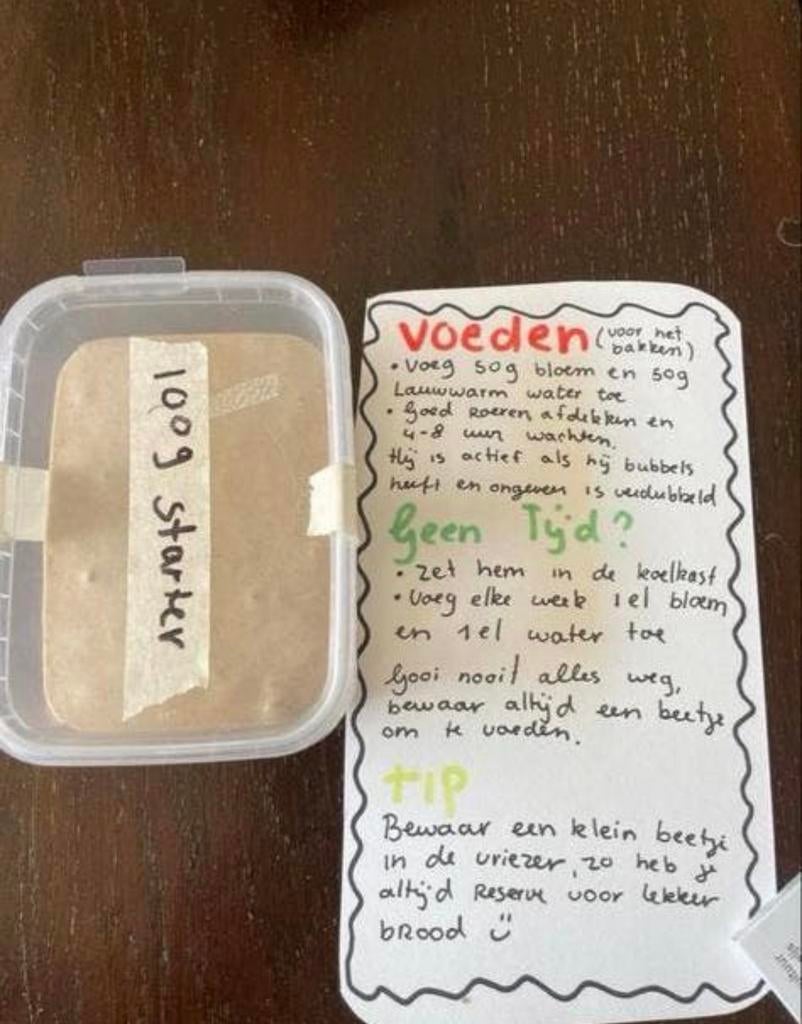 100g starter
Voeden (voor het
bakken)
• Voeg 50g bloem en 50g
Lauwwarm water toe
• Goed roeren afdekken en
4-8 uur wachten.
Hij is actief als hij bubbels
heeft en ongeveer is verdubbeld
Geen Tijd?
• Zet hem in de koelkast
• Voeg elke week 1 el bloem
en 1 el water toe
Gooi nooit alles weg,
bewaar altijd een beetje
om te voeden.
tip
Bewaar een klein beetje
in de vriezer, zo heb je
altijd Reserve voor lekker
brood